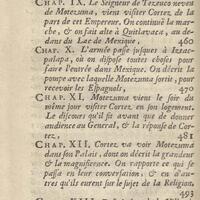 CHAP. IX. Le Seigneur de Tezcuco neveu
de Motezuma, vient visiter Cortez de la
part de cet Empereur. On continuë la mar-
che, & on fait alte à Quitlavaca, au de-
dans du Lac de Mexique, 460
CHAP. X. L'armée passe jusques à Iztac-
palapa, où on dispose toutes choses pour
faire l'entrée dans Mexique. On décrit la
pompe avec laquelle Motezuma sortit, pour
recevoir les Espagnols, 470
CHAP. XI. Motezuma vient le soir du
même jour visiter Cortez, en son logement.
Le discours qu'il fit avant que de donner
audience au General, & la réponse de Cor-
tez, 481
CHAP. XII. Cortez va voir Motezuma
dans son Palais, dont on décrit la grandeur
& la magnificence. On rapporte ce qui se
passa en leur conversation, & en d'au-
tres qu'ils eurent sur le sujet de la Religion,
493